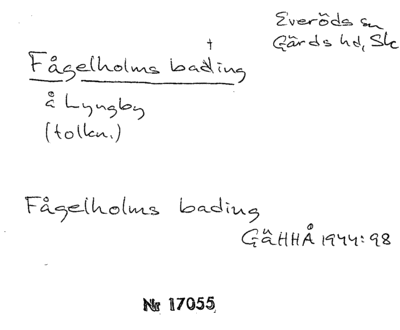 Everöds sn
Gärds hd, Sk
†
Fågelholms bading
å Lyngby
(tolkn.)
Fågelholms bading
GäHHÅ 1944:98
Nr 17055